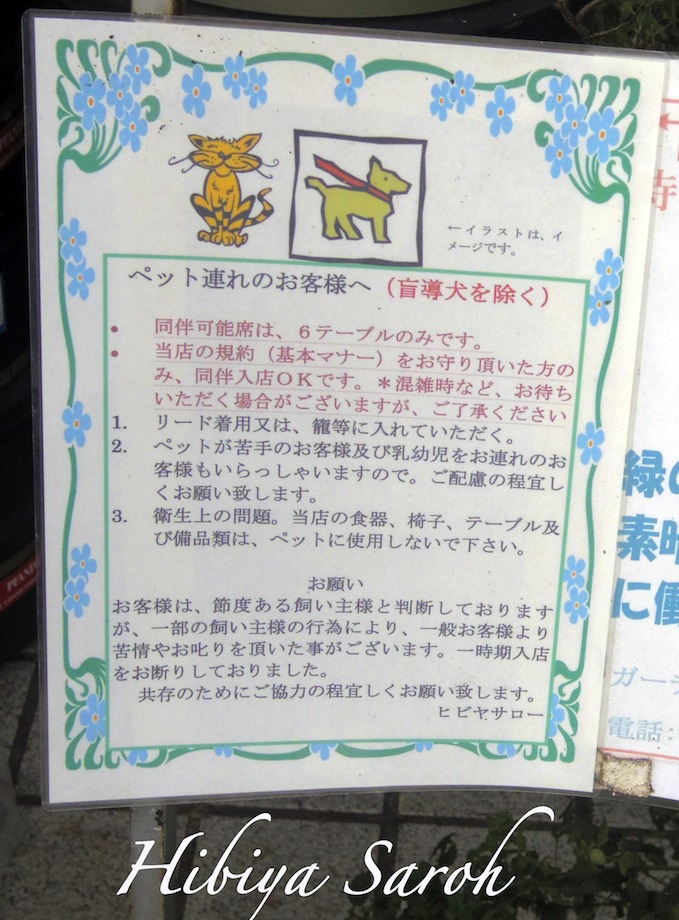 ←イラストは、イ
メージです。
ペット連れのお客様へ（盲導犬を除く）
• 同伴可能席は、６テーブルのみです。
• 当店の規約（基本マナー）をお守り頂いた方の
み、同伴入店ＯＫです。＊混雑時など、お待ち
いただく場合がございますが、ご了承ください
1. リード着用又は、籠等に入れていただく。
2. ペットが苦手のお客様及び乳幼児をお連れのお
客様もいらっしゃいますので。ご配慮の程宜し
くお願い致します。
3. 衛生上の問題。当店の食器、椅子、テーブル及
び備品類は、ペットに使用しないで下さい。
お願い
お客様は、節度ある飼い主様と判断しております
が、一部の飼い主様の行為により、一般お客様より
苦情やお叱りを頂いた事がございます。一時期入店
をお断りしておりました。
共存のためにご協力の程宜しくお願い致します。
ヒビヤサロー
緑の
素晴
に働
ガーデ
電話:
Hibiya Saroh